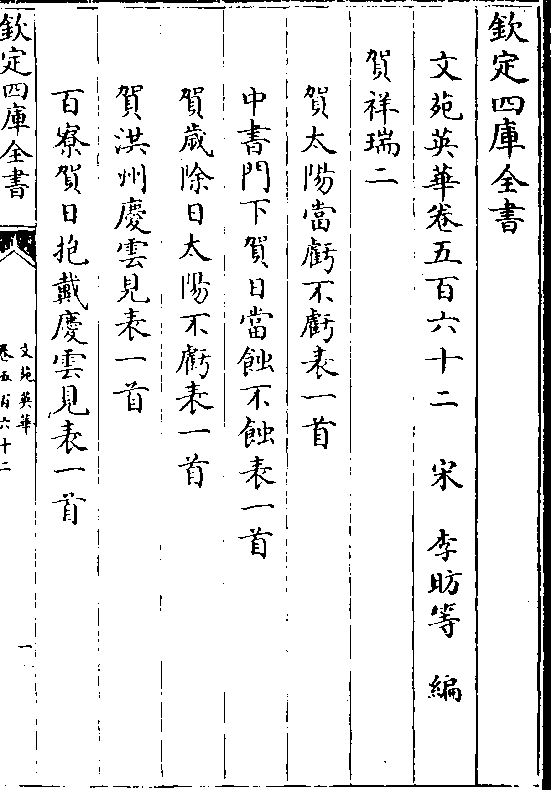 欽定四庫全書
文苑英華卷五百六十二 宋 李昉等 編
賀祥瑞二
賀太陽當虧不虧表一首
中書門下賀日當蝕不蝕表一首
賀歲除日太陽不虧表一首
賀洪州慶雲見表一首
百寮賀日抱戴慶雲見表一首
欽定四庫全書
文苑英華
卷五百六十二
一